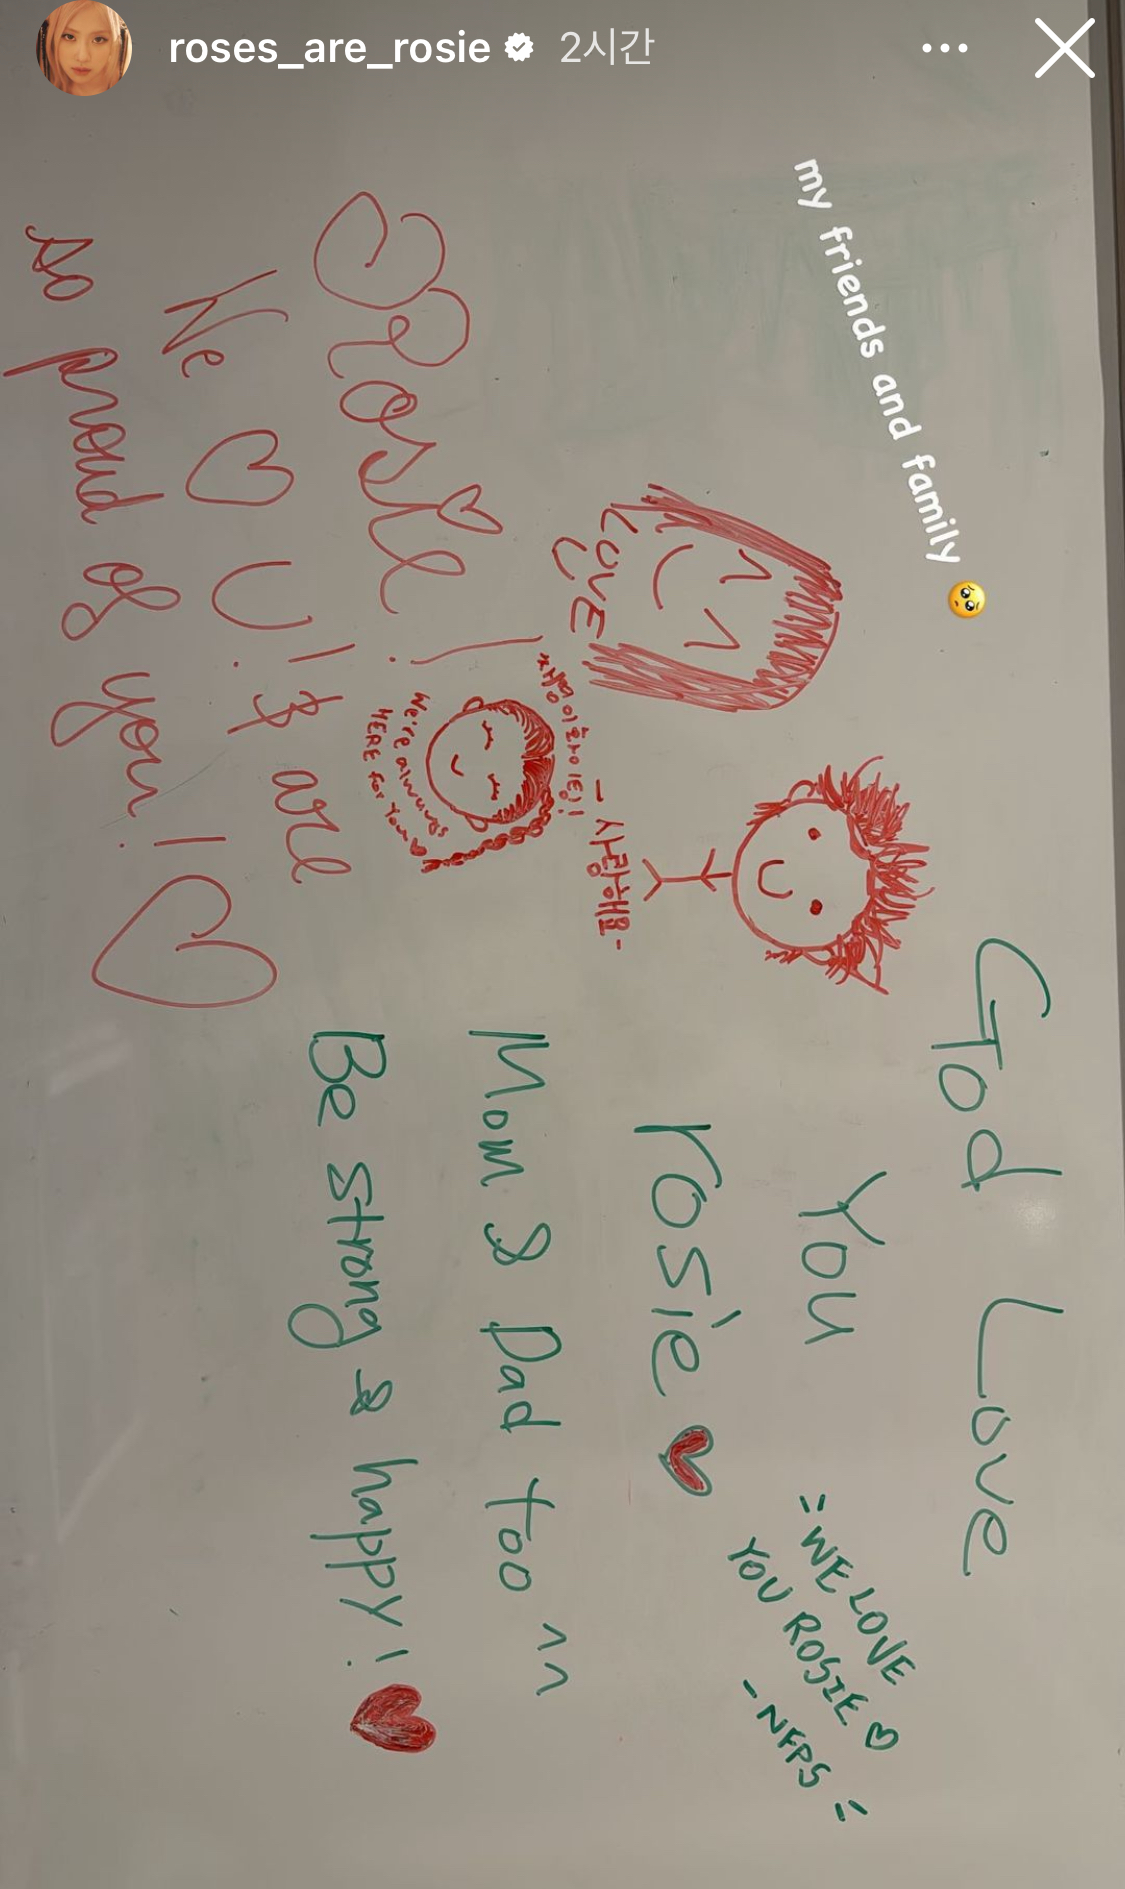 roses_are_rosie 2시간
my friends and family 🥺
Rosie!
We ♡ U! & are
so proud of you! ♡
LOVE
U
채영이 화이팅!
We're always
HERE for You ♡
- 사랑해요 -
God Love
You
rosie ♥
Mom & Dad too ^^
Be strong & happy! ♥
" WE LOVE
YOU ROSIE ♡
- NFPS "